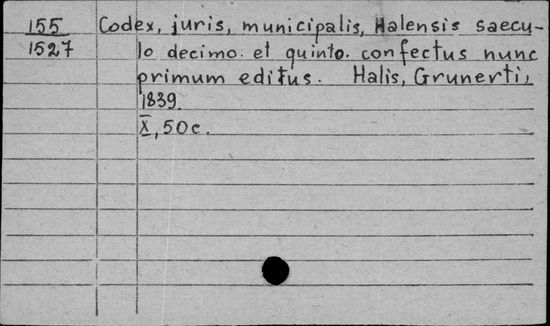 155 Codex, juris, municipalis, Halensis saecu-
1527 lo decimo. et quinto. confectus nunc
primum editus. Halis, Grunerti,
1839.
X, 50 c.